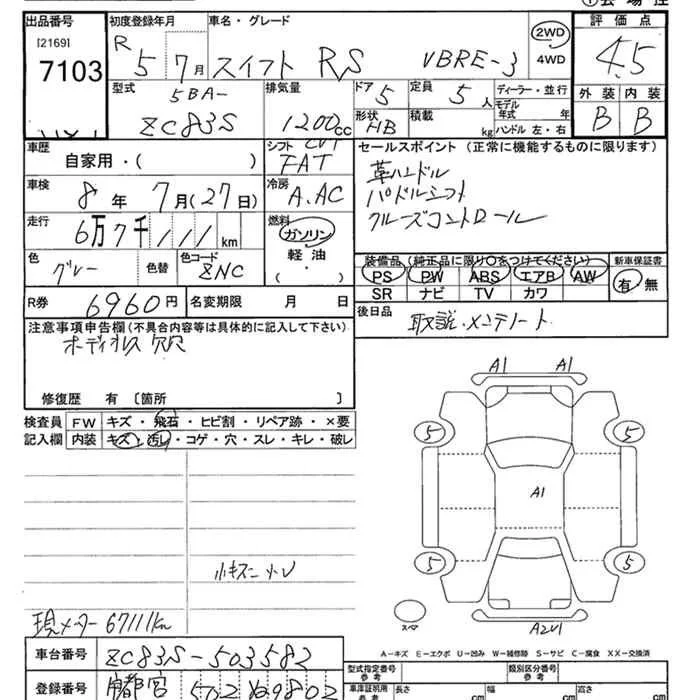 出品番号 初度登録年月 車名・グレード 評価点
[2169]
7103
R 5 7月 スイフト RS VBRE-3 2WD 4WD 4.5
型式 排気量 ドア 定員 ディーラー・並行 外装 内装
5BA-
ZC83S 1200cc 5 5人 モデル年式 年 B B
形状 積載
HB kg ハンドル 左・右
車歴 シフト セールスポイント (正常に機能するものに限ります)
自家用・( ) FAT CVT
革ハンドル
車検 8年 7月(27日) 冷房 A.AC
パドルシフト
走行 6万7千111km 燃料 ガソリン 軽油・( )
クルーズコントロール
色 グレー 色替 色コード ZNC
装備品 (純正品に限り○をつけてください) 新車保証書
PS PW ABS エアB AW 有・無
SR ナビ TV カワ
R券 6960円 名変期限 月 日
後日品 取説・メンテノート
注意事項申告欄(不具合内容等は具体的に記入して下さい)
修復歴 有 〔箇所 〕
検査員記入欄 FW キズ・飛石・ヒビ割・リペア跡・×要
内装 キズ・汚レ・コゲ・穴・スレ・キレ・破レ
A1 A1
5 5
A1
5 5
スペア
A2U1
現メーター 67111km
A-キズ E-エクボ U-凹み W-補修跡 S-サビ C-腐食 XX-交換済
車台番号 ZC83S-503582
型式指定番号 参考 類別区分番号 参考
登録番号 宇都宮 502 ぬ9802
車庫証明用 参考 長さ cm 幅 cm 高さ cm